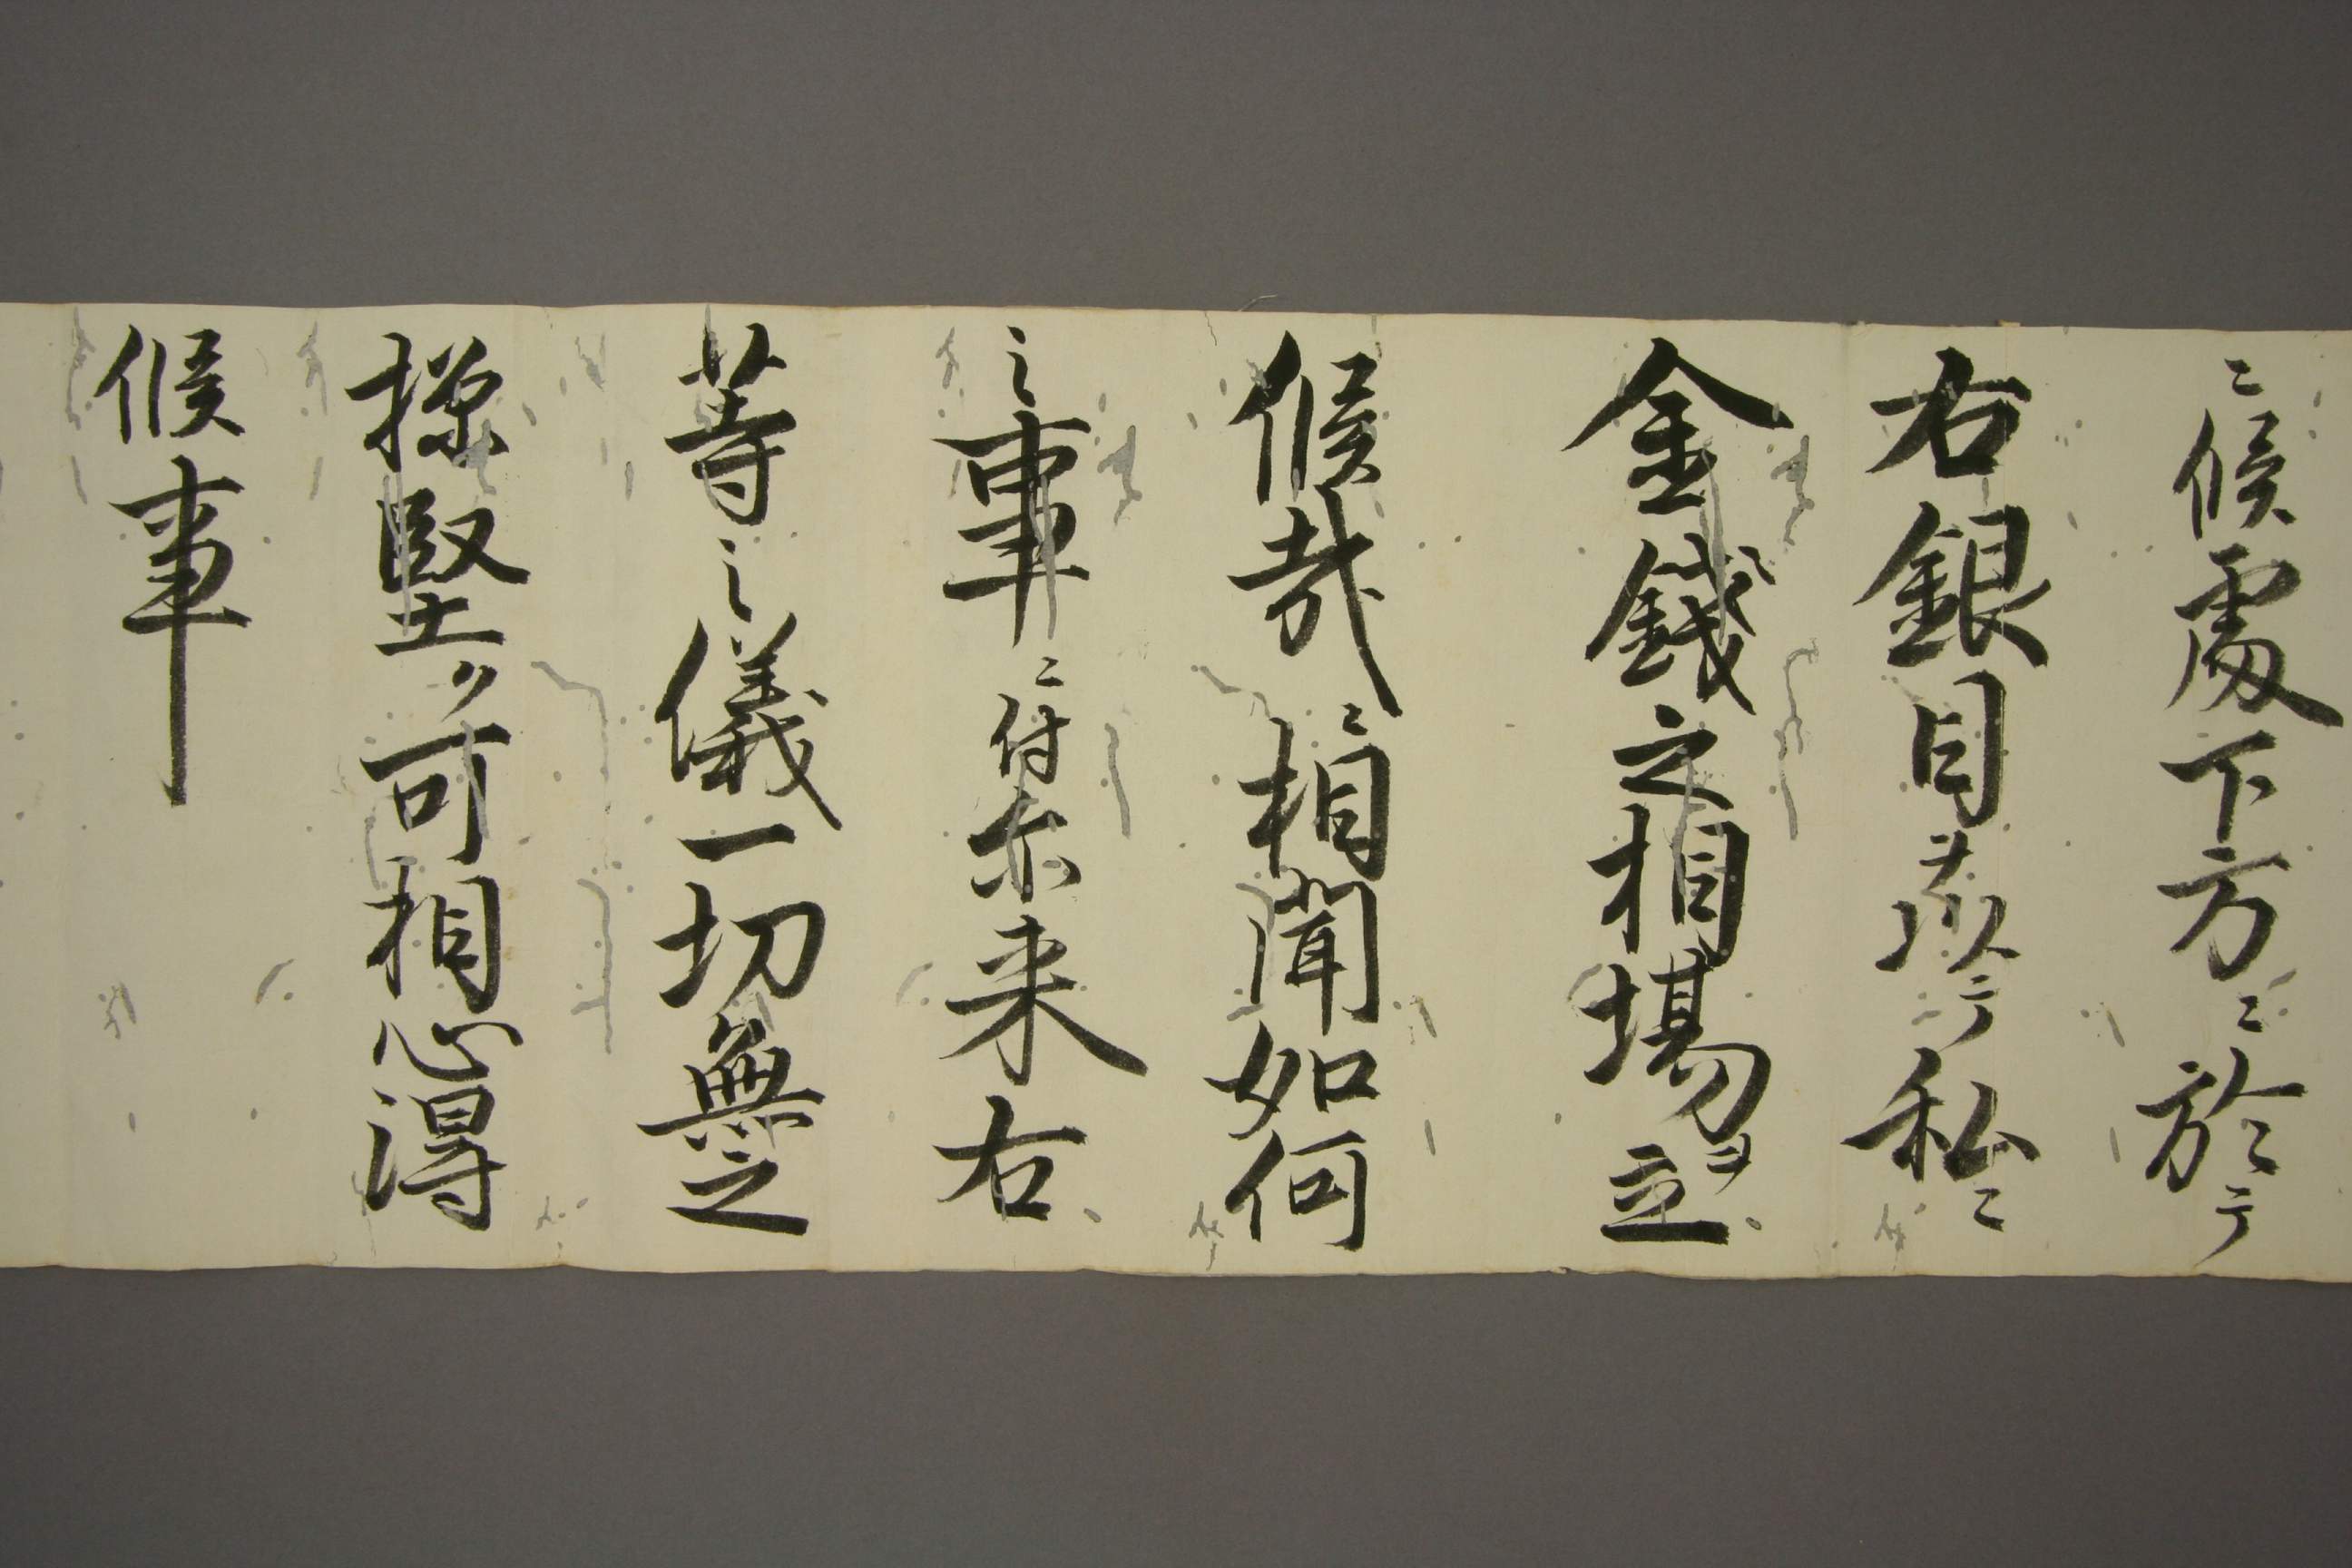 ニ候處下方ニ於テ
右銀目ヲ以テ私ニ
金錢之相場ヲ立
候哉ニ相聞如何
之事ニ付尓来右
等之儀一切無之
様堅ク可相心得
候事